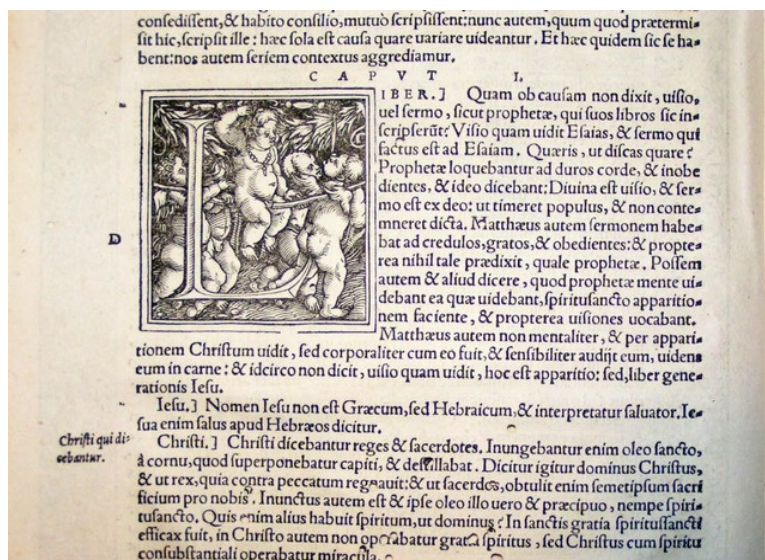 confediſſent, & habito conſilio, mutuò ſcripſiſſent: nunc autem, quum quod prætermi⸗
ſit hic, ſcripſit ille: hæc ſola eſt cauſa quare uariare uideantur. Et hæc quidem ſic ſe ha⸗
bent: nos autem ſeriem contextus aggrediamur.
CAPVT I.
LIBER.] Quam ob cauſam non dixit, uiſio,
uel ſermo, ſicut prophetæ, qui ſuos libros ſic in⸗
ſcripſerũt? Viſio quam uidit Eſaias, & ſermo qui
factus eſt ad Eſaiam. Quæris, ut diſcas quare?
Prophetæ loquebantur ad duros corde, & inobe
dientes, & ideo dicebant: Diuina eſt uiſio, & ſer⸗
mo eſt ex deo: ut timeret populus, & non conte⸗
mneret dicta. Matthæus autem ſermonem habe⸗
D
bat ad credulos, gratos, & obedientes: & propte⸗
rea nihil tale prædixit, quale prophetæ. Poſſem
autem & aliud dicere, quod prophetæ mente ui⸗
debant ea quæ uidebant, ſpirituſancto apparitio⸗
nem faciente, & propterea uiſiones uocabant.
Matthæus autem non mentaliter, & per appari⸗
tionem Chriſtum uidit, ſed corporaliter cum eo fuit, & ſenſibiliter audijt eum, uidens
eum in carne: & idcirco non dicit, uiſio quam uidit, hoc eſt apparitio: ſed, liber gene⸗
rationis Ieſu.
Ieſu.] Nomen Ieſu non eſt Græcum, ſed Hebraicum, & interpretatur ſaluator. Ie⸗
ſua enim ſalus apud Hebræos dicitur.
Chriſti qui di⸗
cebantur.
Chriſti.] Chriſti dicebantur reges & ſacerdotes. Inungebantur enim oleo ſancto,
à cornu, quod ſuperponebatur capiti, & deſtillabat. Dicitur igitur dominus Chriſtus,
& ut rex, quia contra peccatum regnauit: & ut ſacerdos, obtulit enim ſemetipſum ſacri
ficium pro nobis. Inunctus autem eſt & ipſe oleo illo uero & præcipuo, nempe ſpiri⸗
tuſancto. Quis enim alius habuit ſpiritum, ut dominus? In ſanctis gratia ſpirituſſancti
efficax fuit, in Chriſto autem non operabatur gratia ſpiritus, ſed Chriſtus cum ſpiritu
conſubſtantiali operabatur miracula.